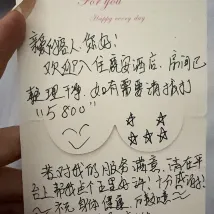 For you
Happy every day
亲爱的客人,您好!
欢迎入住康安酒店,房间已
整理干净,如有需要请拨打
"5800"
若对我的服务满意,请在平
台上帮我点个五星好评,十分感谢!
~祝 身体健康,万事如意~